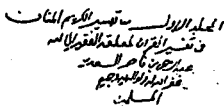 المجلد الاول من تيسير الكريم المنان
في تفسير القران لمعلقه الفقير الى الله
عبد الرحمن بن ناصر السعدي
غفر الله له ولوالديه وجميع
المسلمين